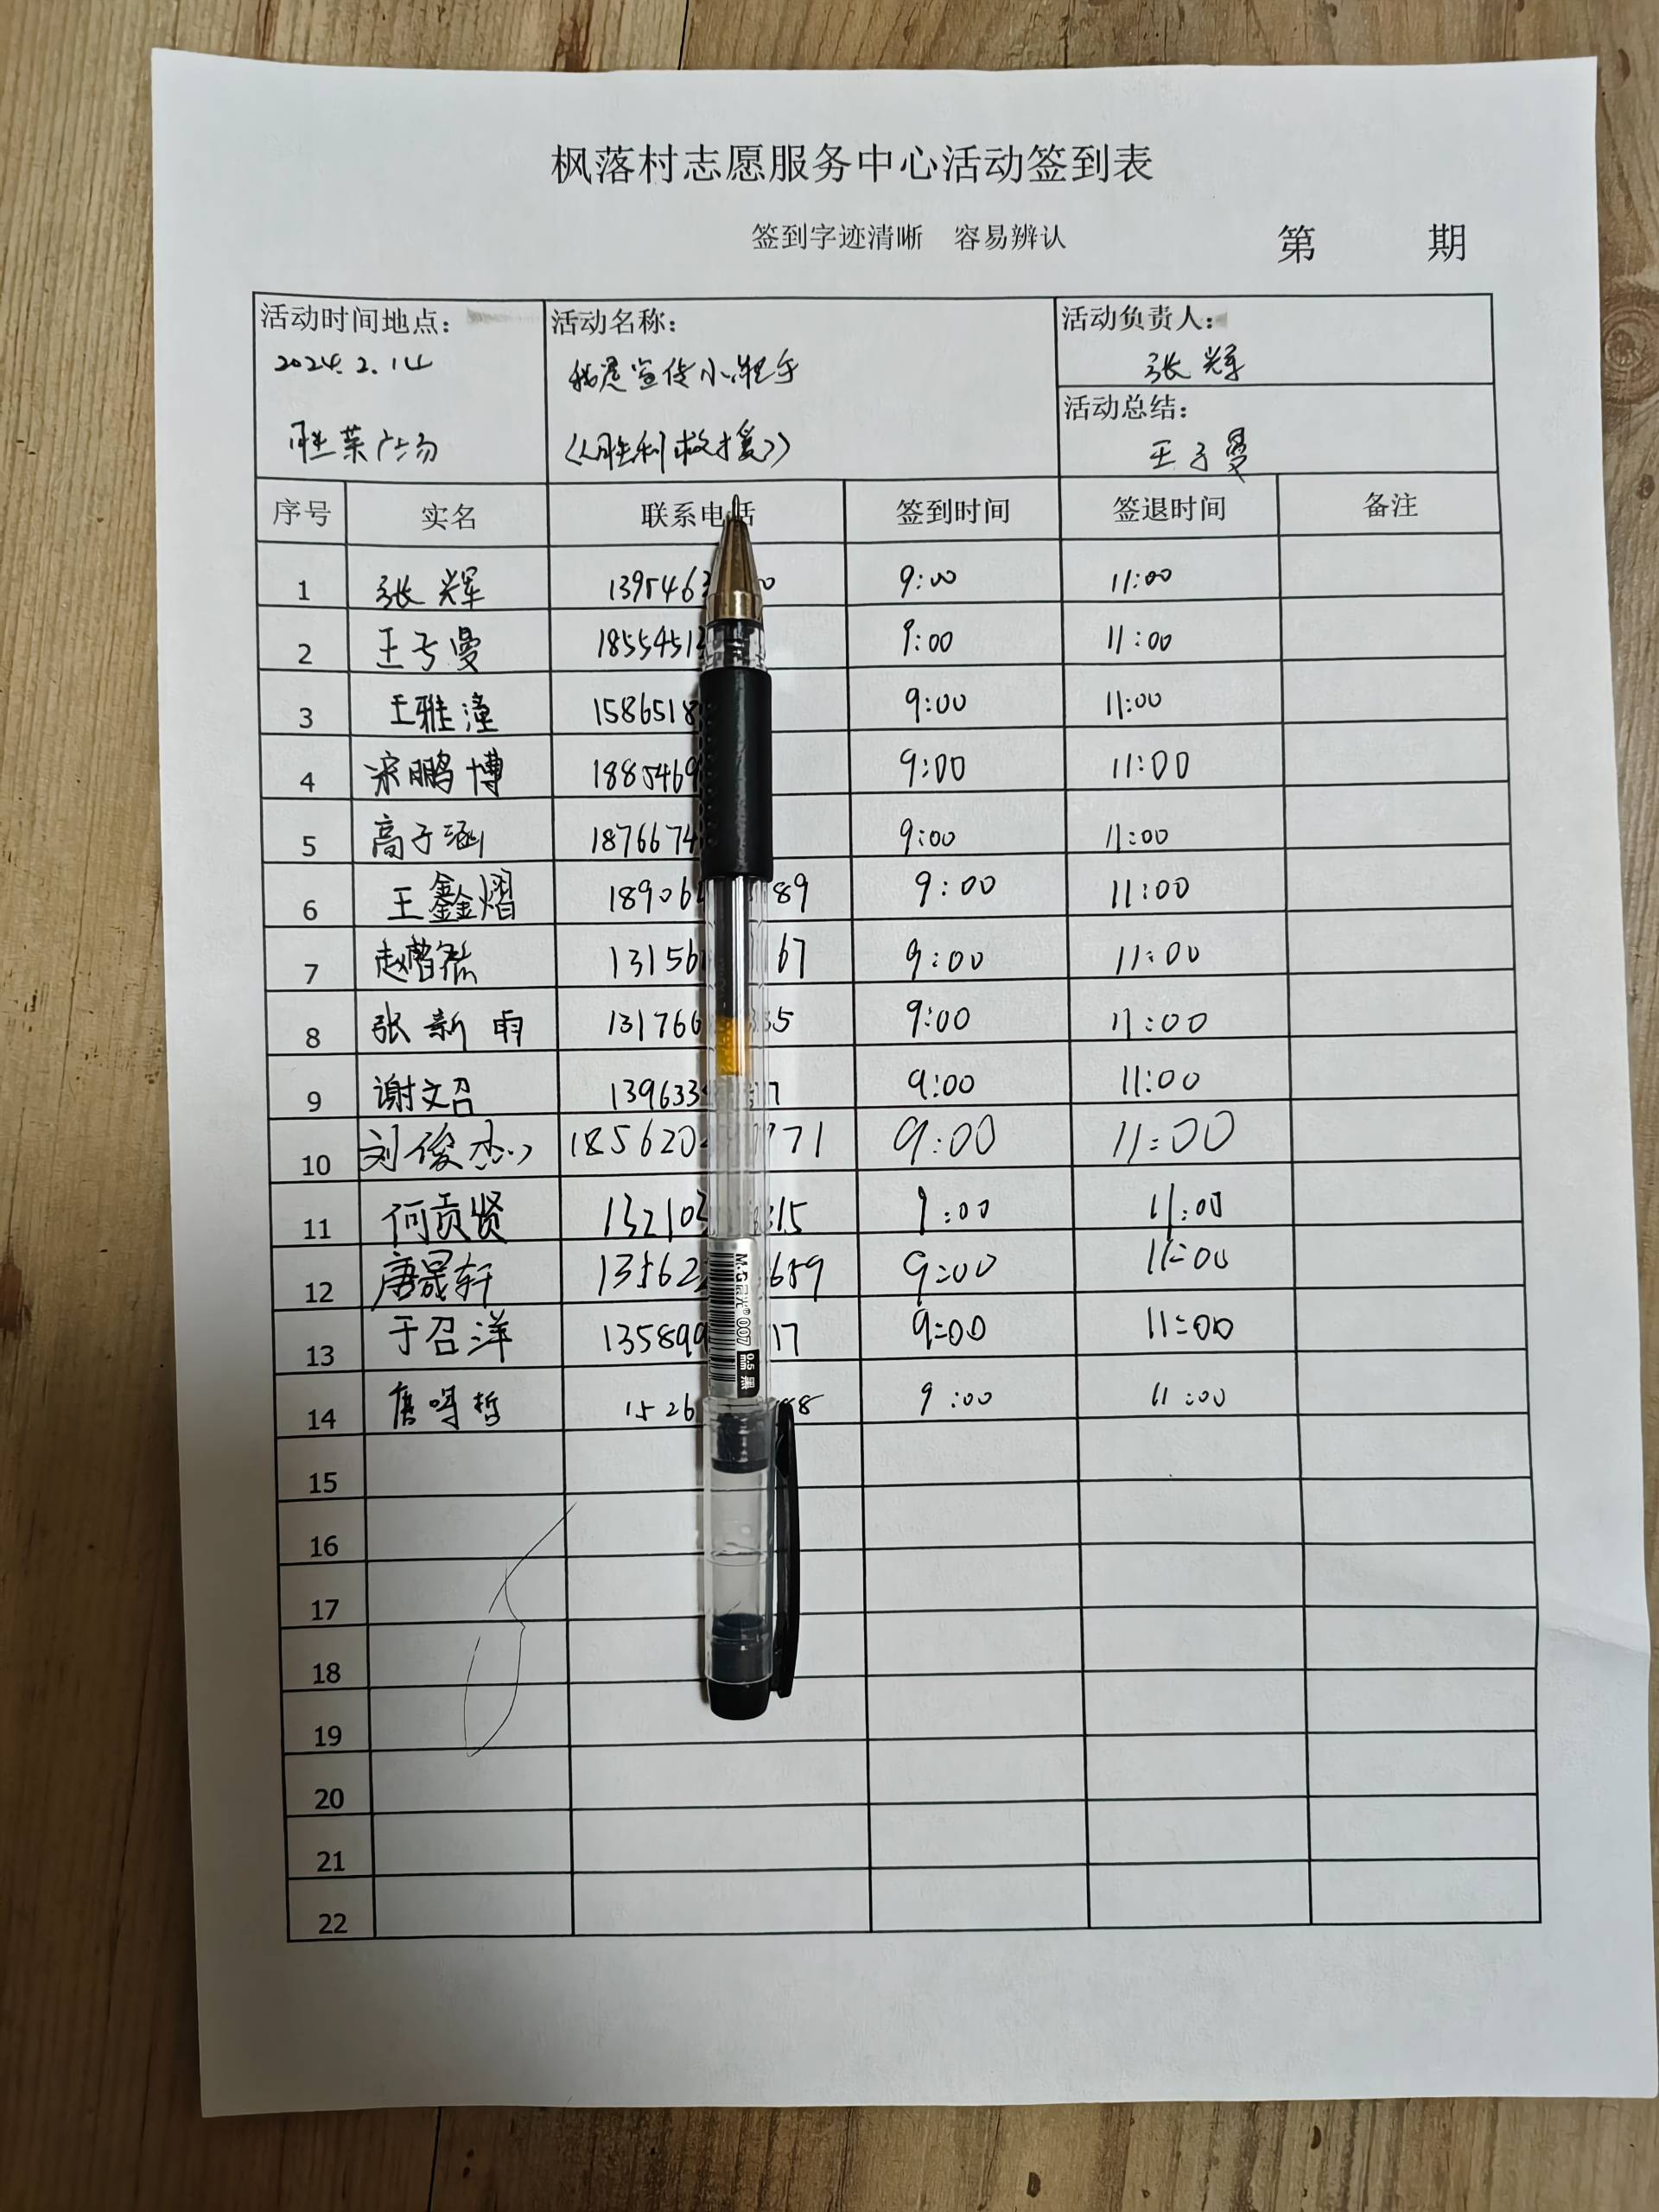 枫落村志愿服务中心活动签到表
签到字迹清晰 容易辨认 第 期
活动时间地点: 活动名称: 活动负责人:
2024.2.14 我是宣传小能手 张辉
活动总结:
胜莱广场 (《胜利救援》) 王子曼
序号 实名 联系电话 签到时间 签退时间 备注
1 张辉 1395463 0 9:00 11:00
2 王子曼 1855451 9:00 11:00
3 王雅潼 1586518 9:00 11:00
4 宋鹏博 1885469 9:00 11:00
5 高子涵 1876674 9:00 11:00
6 王鑫熠 18906 89 9:00 11:00
7 13156 67 9:00 11:00
8 张新雨 131766 35 9:00 11:00
9 谢文召 139633 17 9:00 11:00
10 刘俊杰 185620 771 9:00 11:00
11 何贡贤 132103 315 9:00 11:00
12 唐晟轩 13562 659 9:00 11:00
13 于召洋 135899 17 9:00 11:00
14 唐 哲 1526 88 9:00 11:00
15
16
17
18
19
20
21
22
M&G 晨光 007 0.5mm 黑